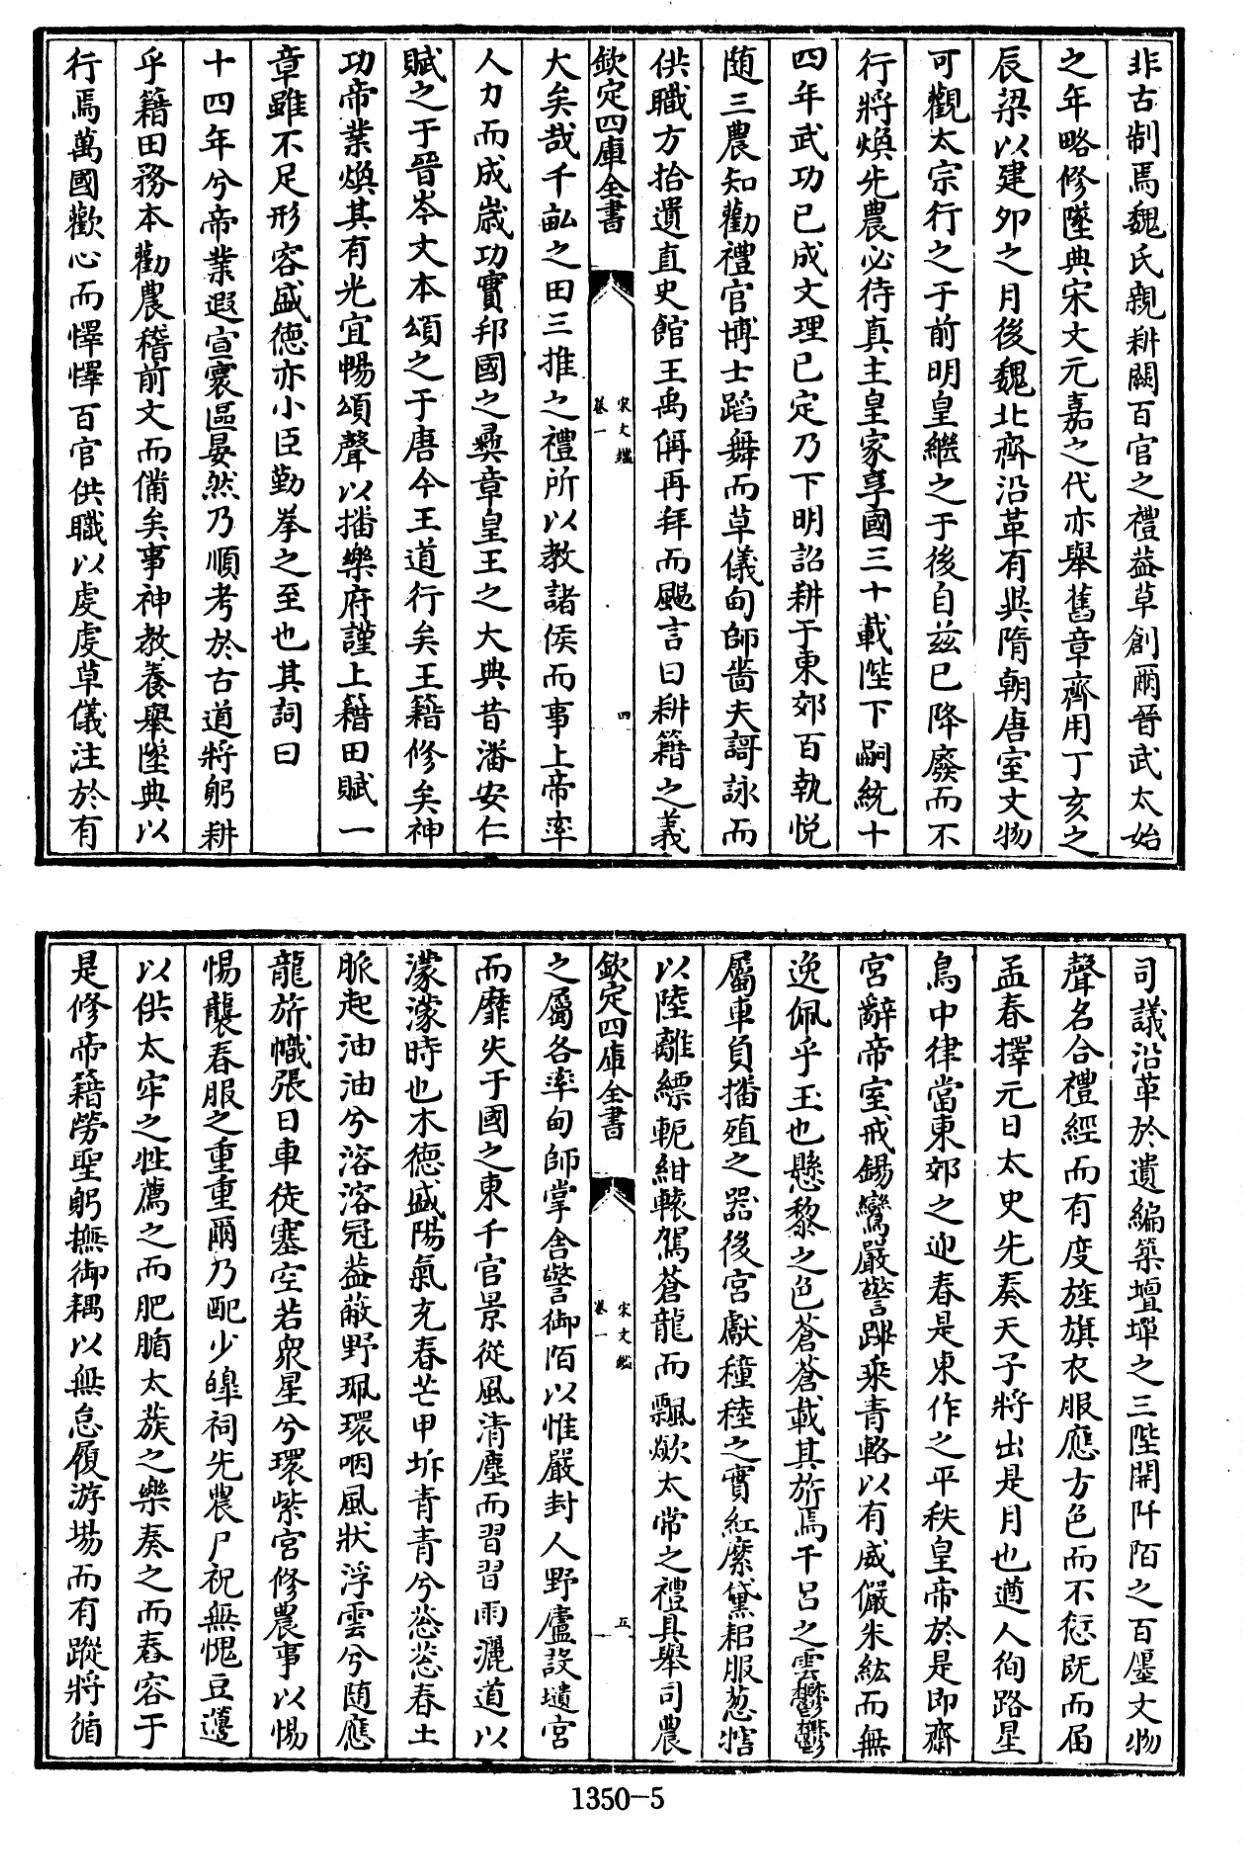 非古制焉魏氏親耕闕百官之禮蓋草創爾晉武太始
之年略修墜典宋文元嘉之代亦舉舊章齊用丁亥之
辰梁以建夘之月後魏北齊沿革有異隋朝唐室文物
可觀太宗行之于前明皇繼之于後自兹已降廢而不
行將煥先農必待真主皇家享國三十載陛下嗣統十
四年武功已成文理已定乃下明詔耕于東郊百執悦
随三農知勸禮官博士蹈舞而草儀甸師嗇夫謌詠而
供職方拾遺直史館王禹偁再拜而颺言曰耕籍之義
欽定四庫全書
宋文鑑
卷一
四
大矣哉千畝之田三推之禮所以教諸侯而事上帝率
人力而成歳功實邦國之彞章皇王之大典昔潘安仁
賦之于晉岑文本頌之于唐今王道行矣王籍修矣神
功帝業煥其有光宜暢頌聲以播樂府謹上籍田賦一
章雖不足形容盛德亦小臣勤拳之至也其詞曰
十四年兮帝業遐宣寰區晏然乃順考於古道將躬耕
乎籍田務本勸農稽前文而備矣事神教養舉墜典以
行焉萬國歡心而懌懌百官供職以虔虔草儀注於有
司議沿革於遺編築壇墠之三陛開阡陌之百廛文物
聲名合禮經而有度旌旗衣服應方色而不愆既而届
孟春擇元日太史先奏天子將出是月也遒人徇路星
鳥中律當東郊之迎春是東作之平秩皇帝於是即齋
宮辭帝室戒鍚鸞嚴警蹕乘青輅以有威儼朱紘而無
逸佩乎玉也懸黎之色蒼蒼載其旂焉干吕之雲鬱鬱
屬車負播殖之器後宮獻穜稑之實紅縻黛耜服葱犗
以陸離縹軛紺轅駕蒼龍而飄欻太常之禮具舉司農
欽定四庫全書
宋文鑑
卷一
五
之屬各率甸師掌舍警御陌以惟嚴封人野廬設壝宮
而靡失于國之東千官景從風清塵而習習雨灑道以
濛濛時也木德盛陽氣充春芒甲坼青青兮葱葱春土
脈起油油兮溶溶冠蓋蔽野珮環咽風狀浮雲兮随應
龍旂幟張日車徒塞空若衆星兮環紫宮修農事以惕
惕襲春服之重重爾乃配少皥祠先農尸祝無愧豆籩
以供太牢之牲薦之而肥腯太蔟之樂奏之而舂容于
是修帝籍勞聖躬撫御耦以無怠履游場而有蹤將循
1350—5